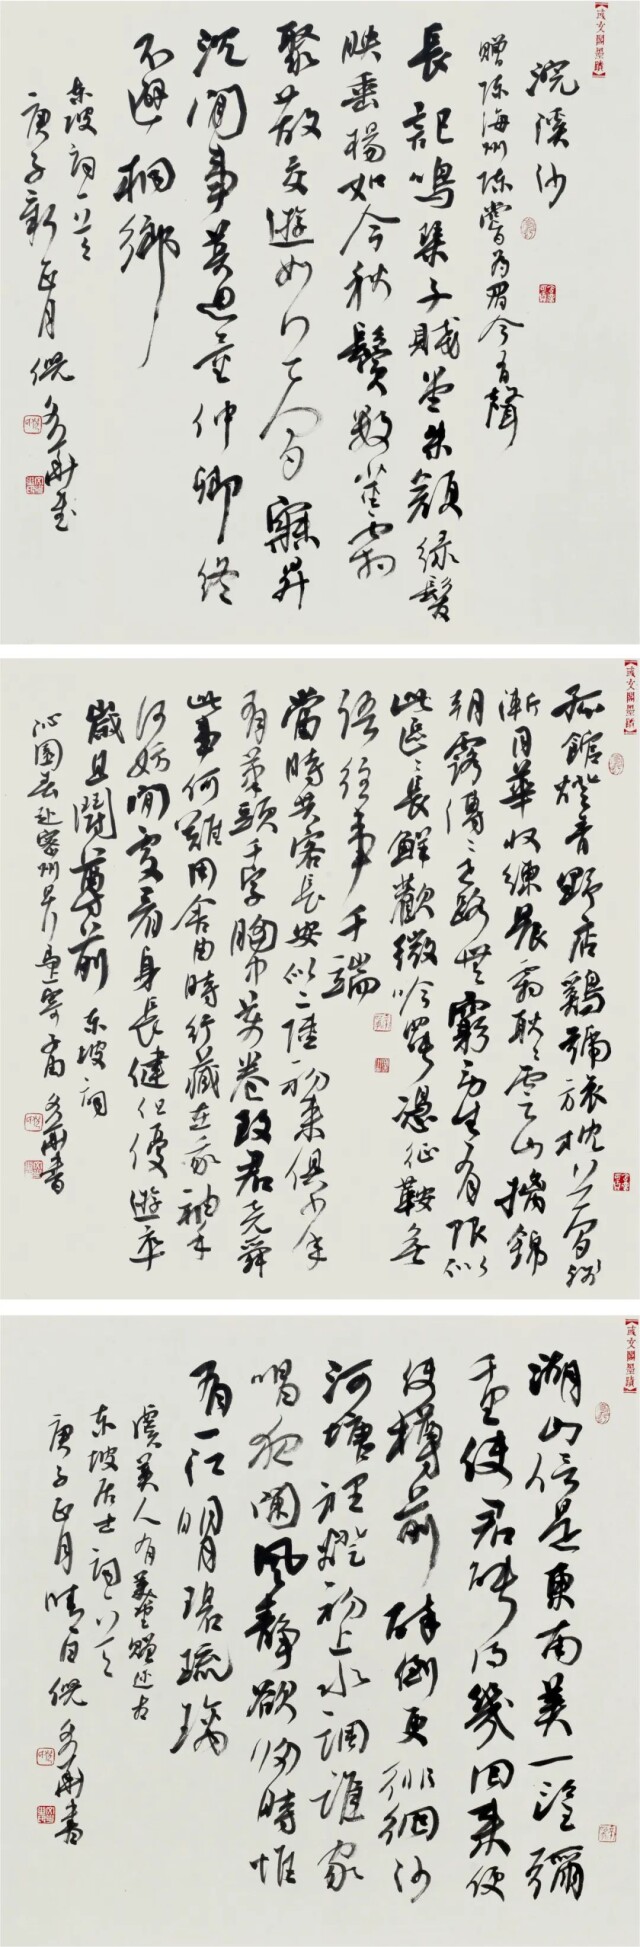 文閣墨蹟
浣溪沙
贈陳海州陳嘗為眉令有聲
長記鳴琴子賤堂朱顏綠髮
映垂楊如今秋鬢數莖霜
聚散交遊如夢寐昇
沉閒事莫思量仲卿終
不避桐鄉
東坡詞一首
庚子新正月倪
文閣墨蹟
孤館燈青野店鷄號旅枕夢殘
漸月華收練晨霜耿耿雲山摛錦
朝露漙漙世路無窮勞生有限似
此區區長鮮歡微吟罷憑征鞍無
語往事千端
當時共客長安似二陸初來俱少年
有筆頭千字胸中萬卷致君堯舜
此事何難用舍由時行藏在我袖手
何妨閒處看身長健但優遊卒
歲且鬪尊前 東坡詞
沁園春赴密州早行馬上寄子由 書
文閣墨蹟
湖山信是東南美一望彌
千里使君能得幾回來便
使樽前醉倒更徘徊沙
河塘裡燈初上水調誰家
唱夜闌風靜欲歸時惟
有一江明月碧琉璃
虞美人有美堂贈述古
東坡居士詞一首
庚子正月晴日倪 書